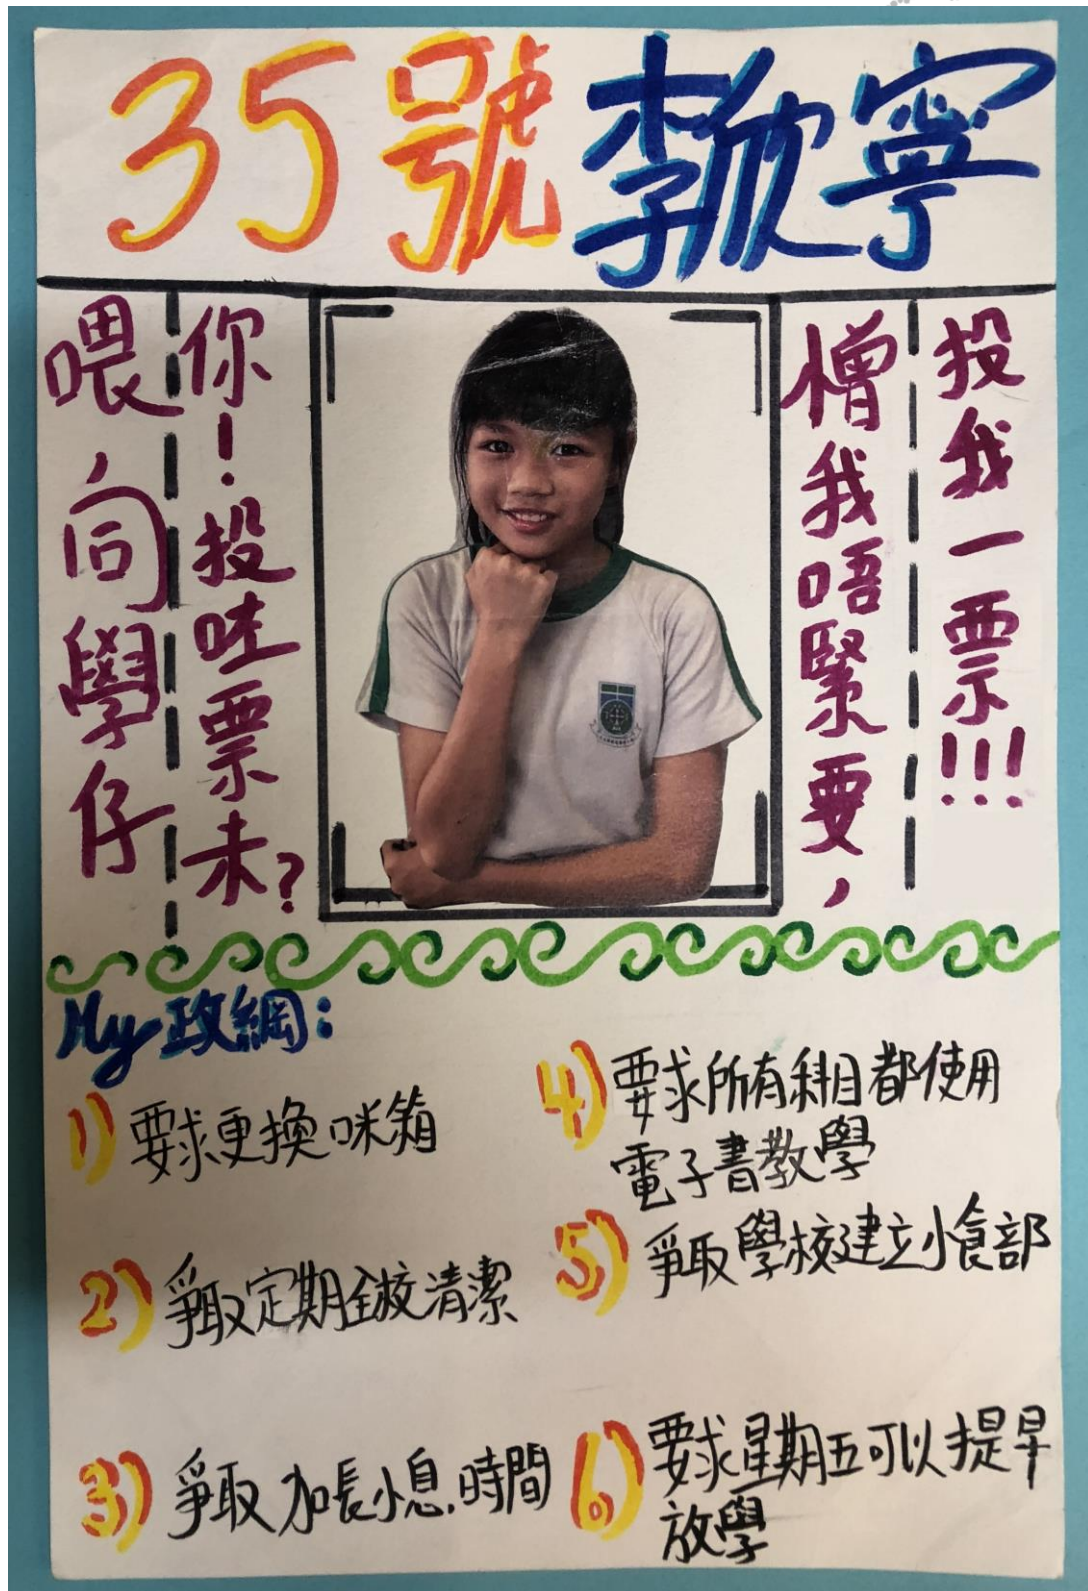 35號 李欣寧
喂向學仔
你！投咗票未？
憎我唔緊要，
投我一票!!!
My政綱：
1) 要求更換咪箱
2) 爭取定期全校清潔
3) 爭取加長小息時間
4) 要求所有科目都使用
電子書教學
5) 爭取學校建立小食部
6) 要求星期五可以提早
放學